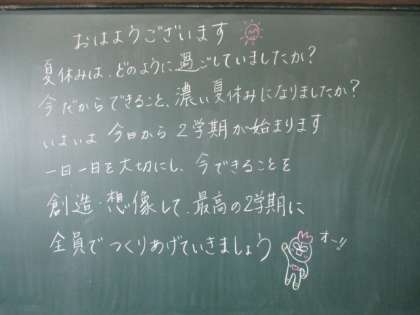 おはようございます
夏休みは、どのように過ごしていましたか?
今だからできること、濃い夏休みになりましたか?
いよいよ 今日から 2学期が始まります
一日一日を大切にし、今できることを
創造・想像して、最高の2学期に
全員で つくりあげていきましょう
オー!!